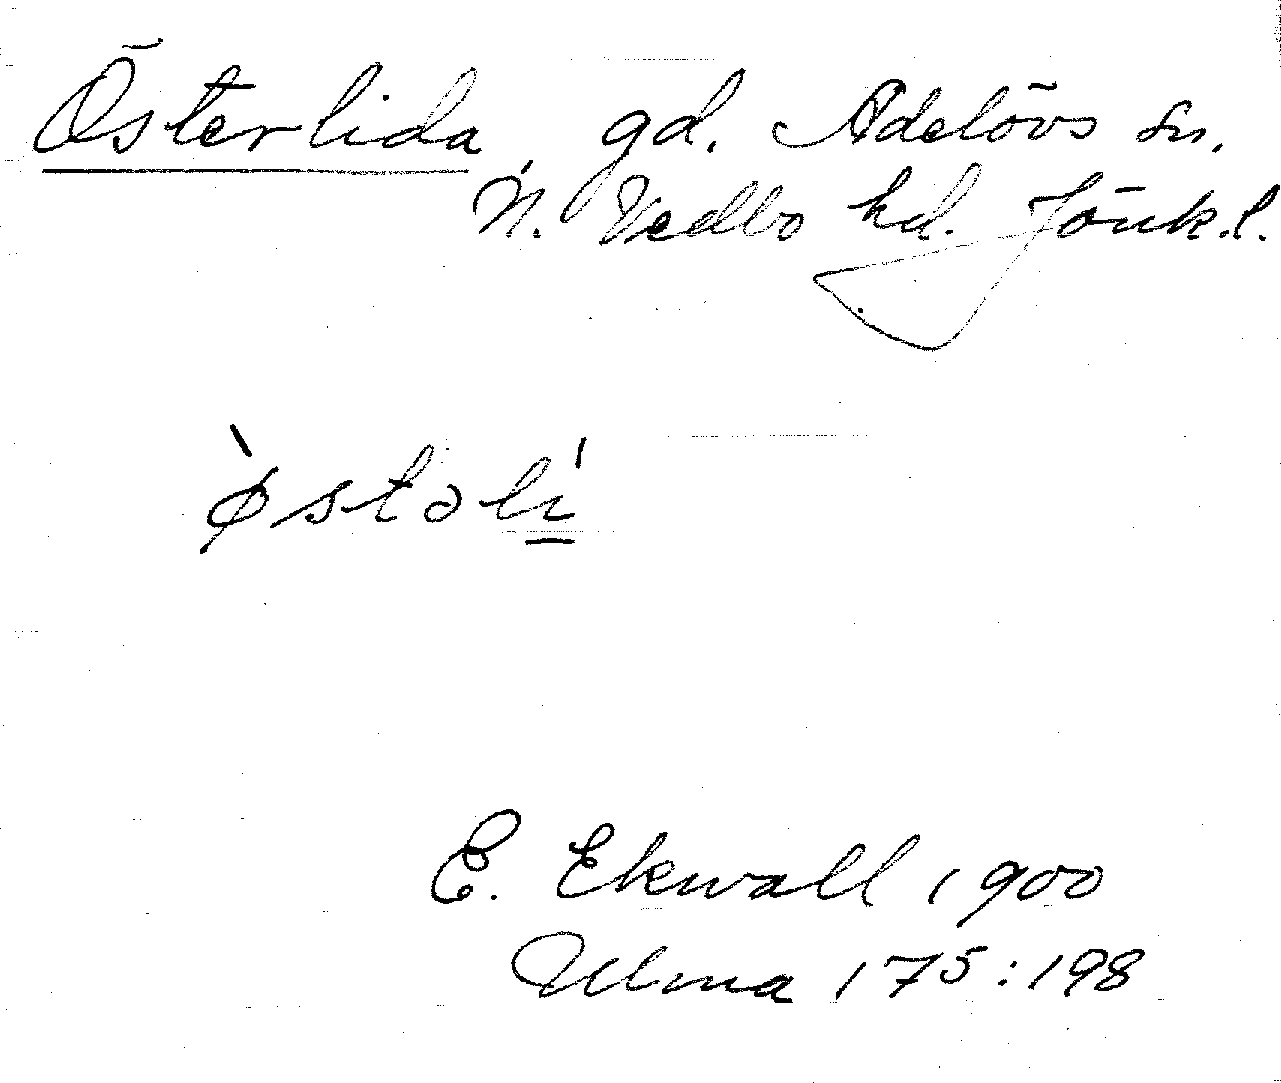 Österlida, gd. Adelövs sn.
N. Vedbo hd. Jönk.l.
ø̀stəlí̠
E. Ekwall 1900
Ulma 175:198